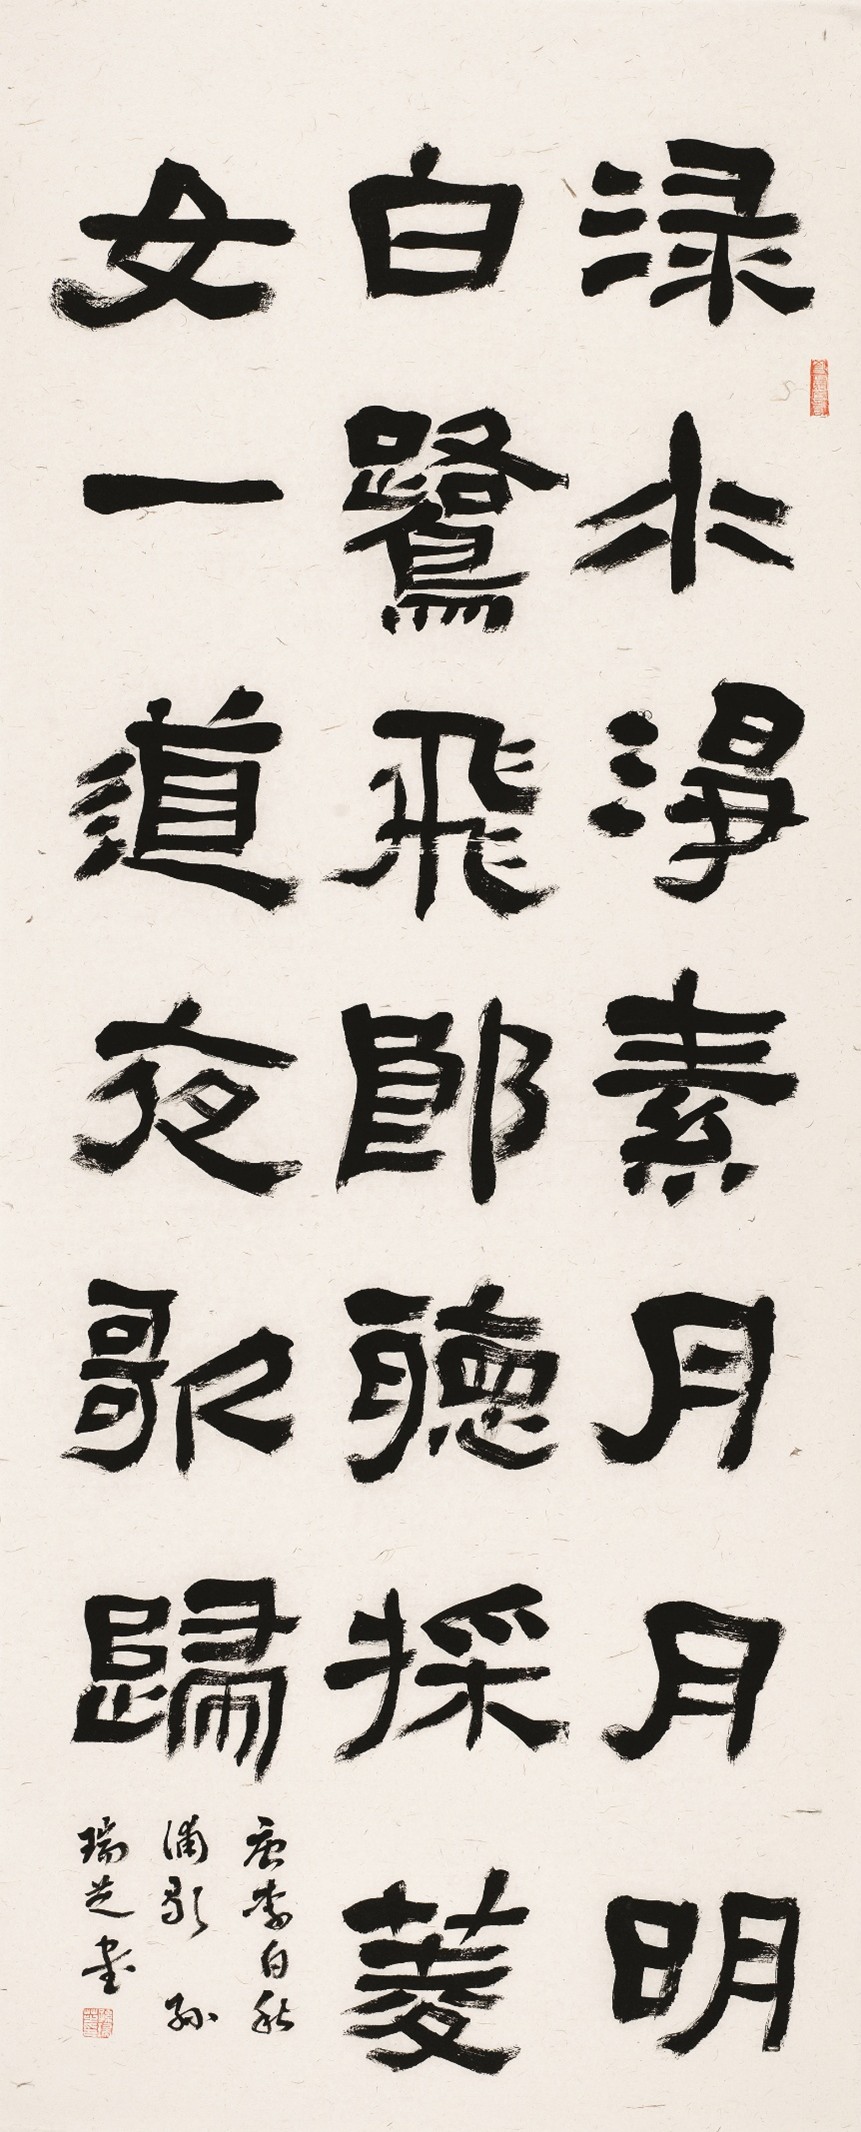 渌水淨素月月明
白鷺飛郎聽採菱
女一道夜歌歸
唐李白秋
浦歌 孫
瑞芝書